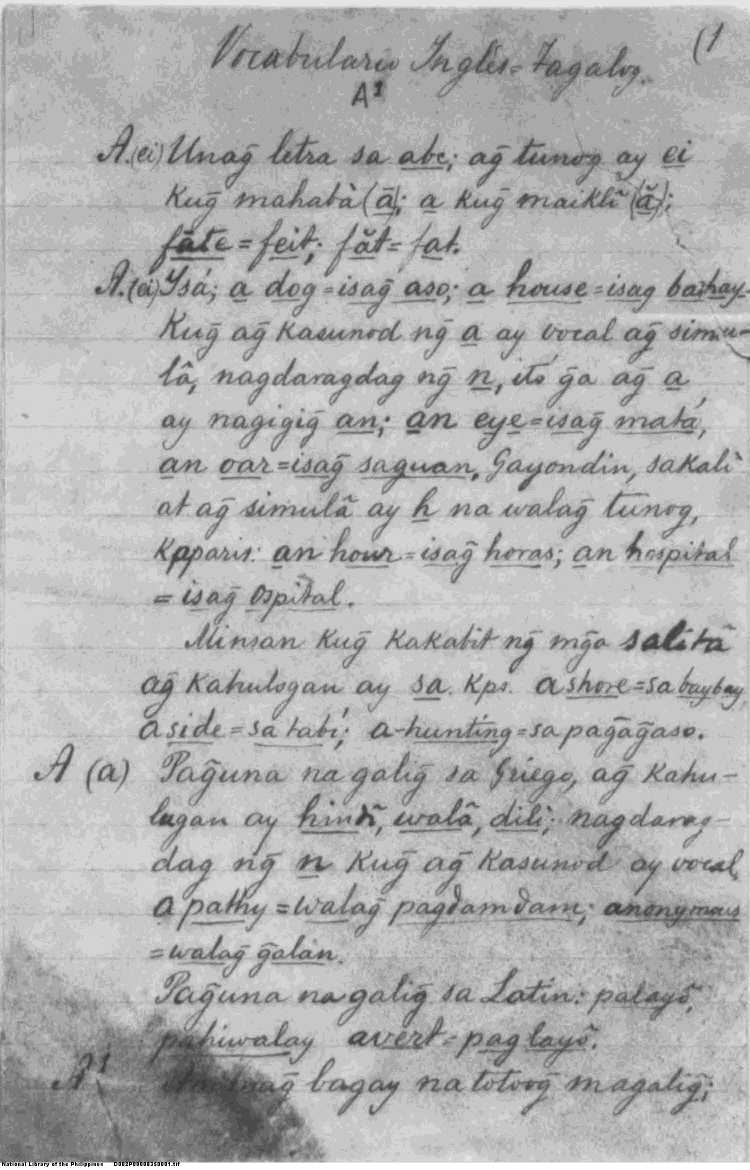 (1
Vocabulario Inglés=Tagalog.
A¹
A.(ei) Unag̃ letra sa abc; ag̃ tunog ay ei
kug̃ mahabà (ā); a kug̃ maiklî (ă);
fāte = feit; făt = fat.
A.(ei) Ysá; a dog = isag̃ aso; a house = isag bahay.
Kug̃ ag̃ kasunod ng̃ a ay vocal ag̃ simu-
lâ, nagdaragdag ng̃ n, itó g̃a ag̃ a,
ay nagigig̃ an; an eye = isag̃ matá,
an oar = isag̃ saguan. Gayondin, sakali
at ag̃ simulâ ay h na walag̃ tunog,
kapparis: an hour = isag̃ horas; an hospital
= isag̃ ospital.
Minsan kug̃ kakabit ng̃ mg̃a salitâ
ag̃ kahulogan ay sa. Kps. ashore = sa baybay,
aside = sa tabí; a-hunting = sa pag̃ag̃aso.
A (a) Pag̃una na galig̃ sa Griego, ag̃ kahu-
lugan ay hindî, walâ, dili; nagdarag-
dag ng̃ n kug̃ ag̃ kasunod ay vocal,
apathy = walag̃ pagdamdam; anonymous
= walag̃ g̃alan.
Pag̃una na galig̃ sa Latin: palayô,
pahiwalay avert = paglayô.
A¹ bagay na totoog̃ magalig̃;
National Library of the Philippines D002P00000350001.tif